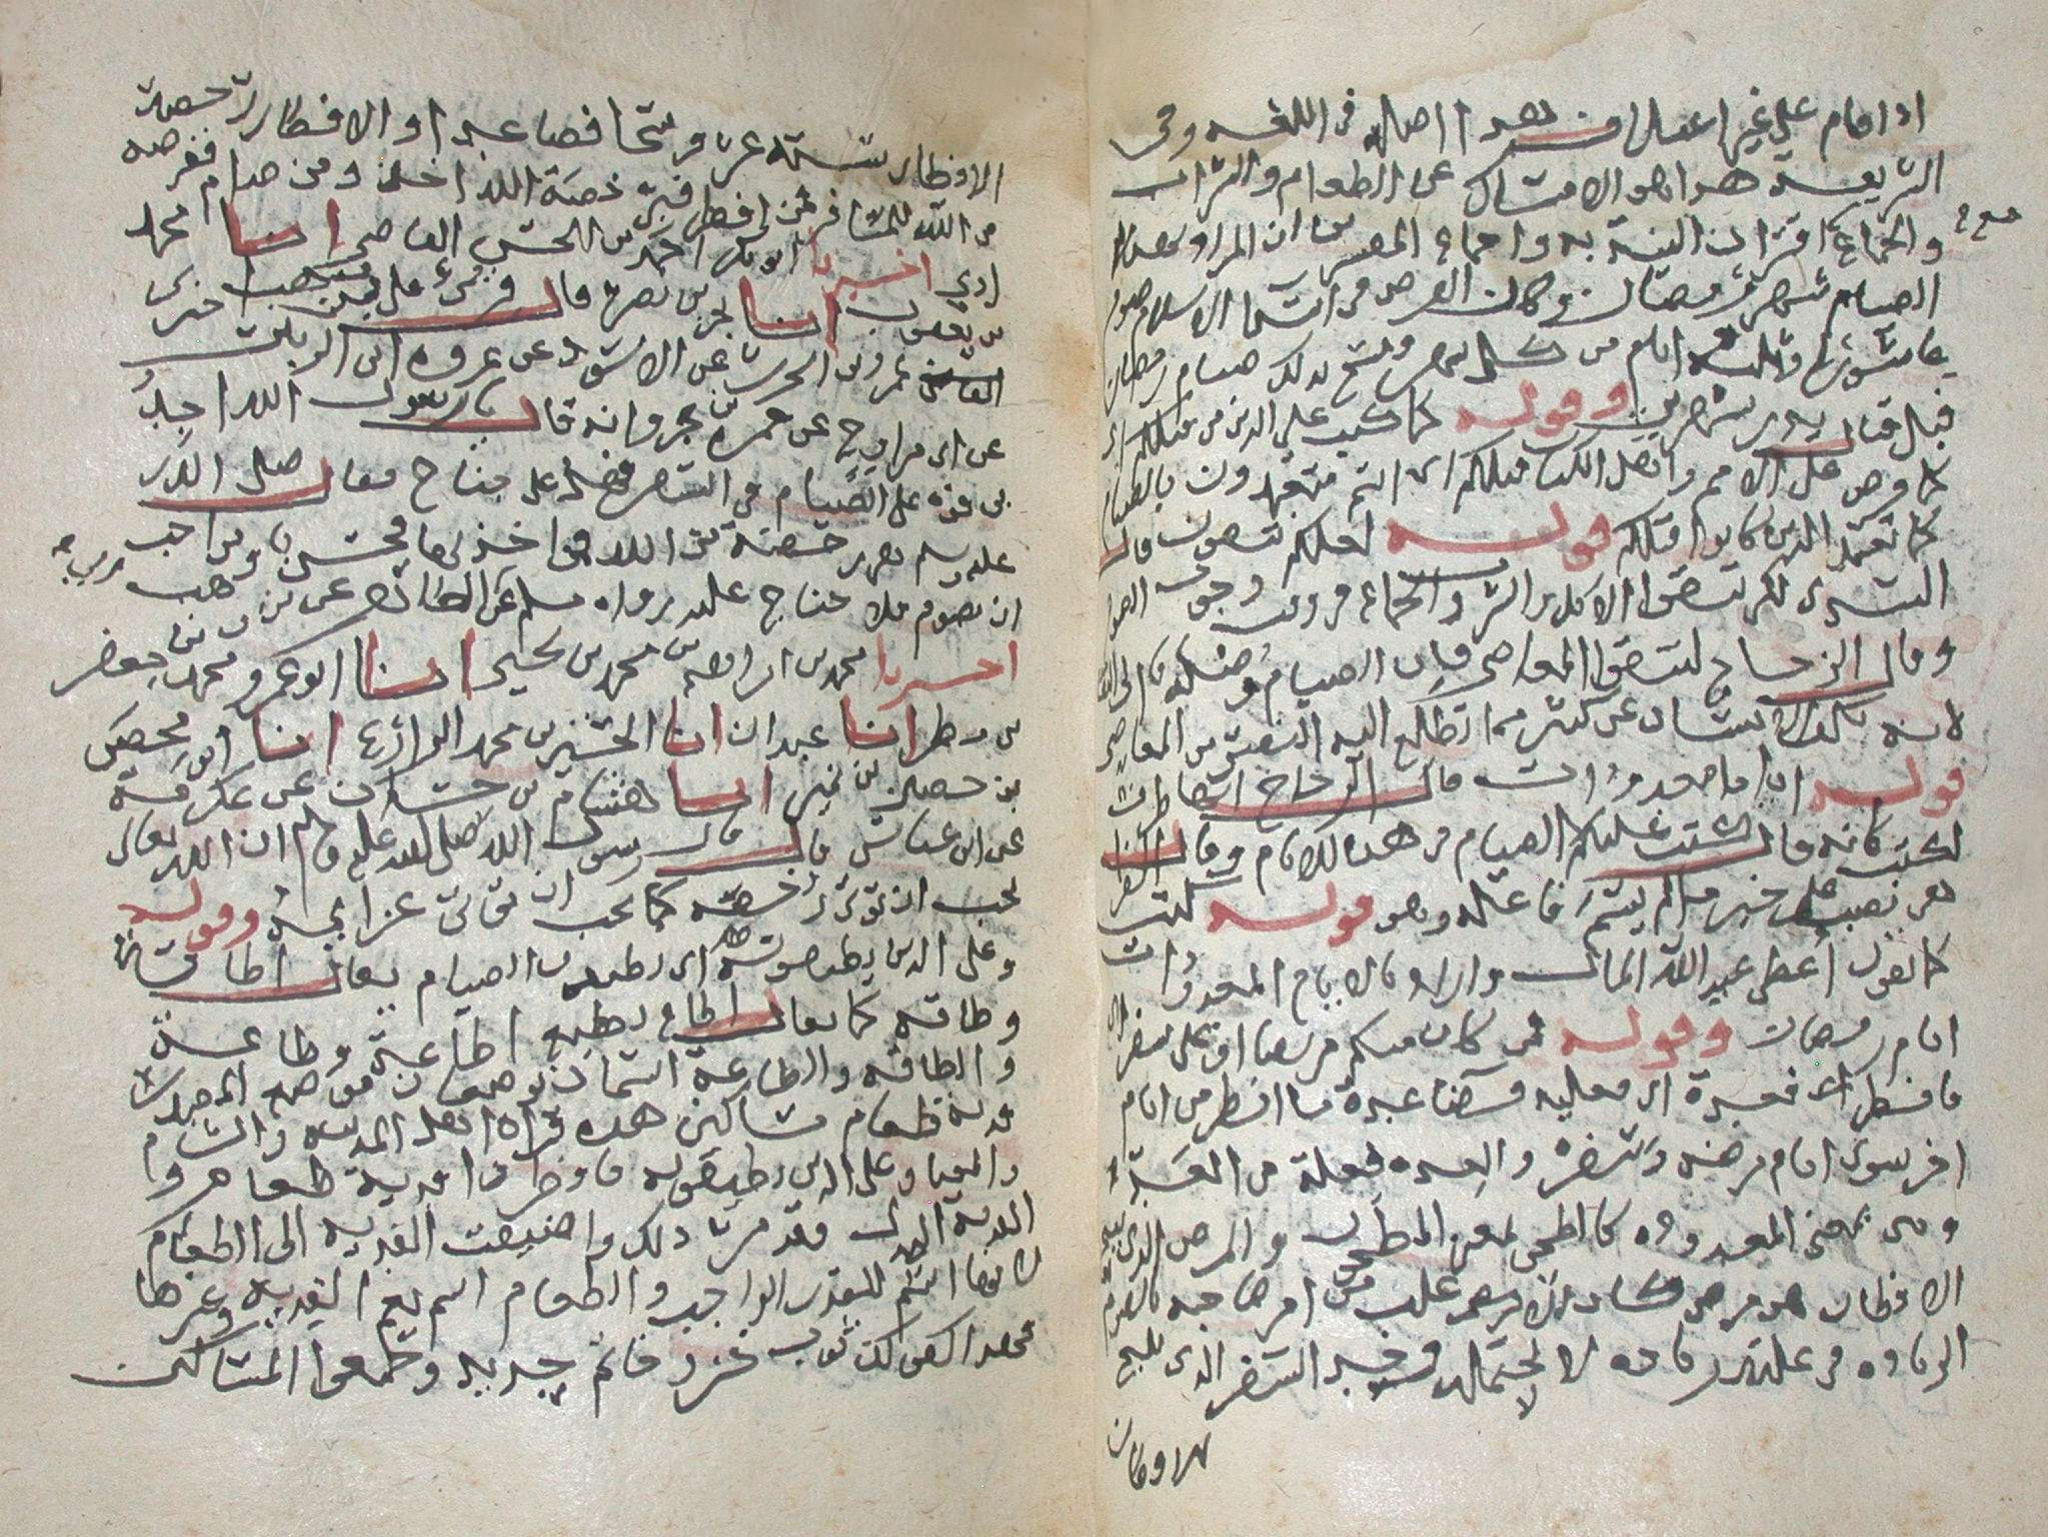 اذا قام على غير اعتلاف هذا اصله فى اللغه وفى
الشريعة هو الامساك عن الطعام والشراب
والجماع مع اقتران النية به واجماع المفسرين ان المراد بهذا
الصيام شهر رمضان وكان الفرض فى ابتدا الاسلام صوم
عاشورا وثلثه ايام من كل شهر ونسخ ذلك صيام رمضان
قبل قتال بدر بشهرين وقوله كما كتب على الذين من قبلكم اى
كما فرض على الامم واهل الكتاب قبلكم اى انتم متعبدون بالصيام
كما تعبد الذين كانوا قبلكم قوله لعلكم تتقون قال
السدى لكى تتقوا الاكل والشرب والجماع فى وقت وجوب الصوم
وقال الزجاج لتتقوا المعاصى فان الصيام وصله الى التقى
لانه يكف الانسان عن كثير مما تطلع اليه النفس من المعاصى
قوله اياما معدودات قال الزجاج انها ظرف
لكتب كانه قال كتب عليكم الصيام فى هذه الايام وقال الفرا
هى نصب على خبر ما لم يسم فاعله وهو قوله كتب
كما تقول اعطى عبد الله المال واراد بالايام المعدودات
ايام رمضان وقوله فمن كان منكم مريضا او على سفر اى
فافطر فعدة اى فعليه قضا عدة ما افطر من ايام
اخر سوى ايام مرضه وسفره والعده فعلة من العد
وهى بمعنى المعدوده كالطحن بمعنى المطحون والمرض الذى يبيح
الافطار هو مرض كان الاغلب من امر صاحبه بالصوم
الزياده فى علته زياده لا يحتمله وحد السفر الذى يبيح
هذا وكان
الافطار ستة عشر فرسخا فصاعدا والافطار رخصة
من الله للمسافر فمن افطر فبرخصة الله اخذ ومن صام ففرضه
ادى اخبرنا ابو بكر احمد بن الحسن القاضى انا محمد
بن يعقوب انا بحر بن نصر قال قرئ على بن وهب اخبرك
عمرو بن الحرث عن الاسود عن عروه بن الزبير
عن ابى مراوح عن حمزه بن عمرو انه قال يا رسول الله اجد
بى قوة على الصيام فى السفر فهل على جناح فقال صلى الله
عليه وسلم هى رخصة من الله فمن اخذ بها فحسن ومن احب
ان يصوم فلا جناح عليه رواه مسلم عن ابى الطاهر عن بن وهب
اخبرنا محمد بن ابراهيم بن محمد بن يحيى انا ابو عمرو محمد بن جعفر
بن مطر انا عبدان انا الحسين بن محمد الذارع انا ابو محصن
بن حصين بن نمير انا هشام بن حسان عن عكرمة
عن ابن عباس قال قال رسول الله صلى الله عليه وسلم ان الله تعالى
يحب ان تؤتى رخصه كما يحب ان تؤتى عزائمه وقوله
وعلى الذين يطيقونه اى يطيقون الصيام يقال اطاق اطاقة
وطاقه كما يقال اطاع يطيع اطاعة وطاعة
والطاقه والطاعة اسمان يوضعان موضع المصدر
فدية طعام مساكين هذه قراة اهل المدينه والشام
والمعنى وعلى الذين يطيقونه فافطروا فدية طعام و
الفدية البدل وقد مر ذلك واضيفت الفدية الى الطعام
لانها اسم للقدر الواجب والطعام اسم يعم الفدية وغيرها
فهذا كقولك ثوب خز وخاتم حديد وجمعوا المساكين